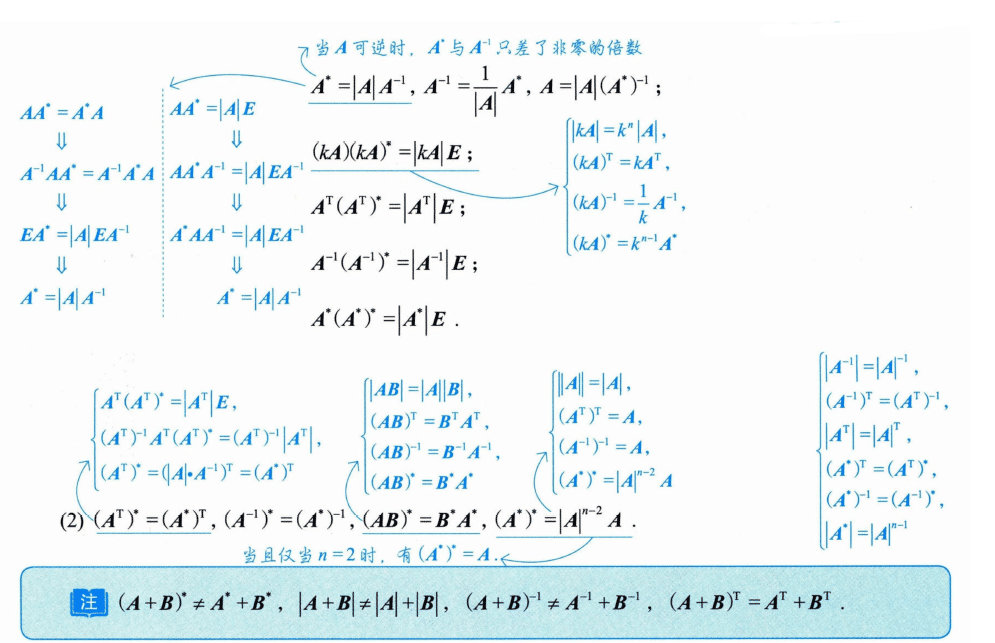 当A可逆时，A*与A⁻¹只差了非零的倍数
A* =|A|A⁻¹，A⁻¹ = 1/|A| A*，A=|A|(A*)⁻¹；
AA* = A*A
⇓
A⁻¹AA* = A⁻¹A*A
⇓
EA* =|A|EA⁻¹
⇓
A* =|A|A⁻¹
AA* =|A|E
⇓
AA*A⁻¹ =|A|EA⁻¹
⇓
A*AA⁻¹ =|A|EA⁻¹
⇓
A* =|A|A⁻¹
(kA)(kA)* =|kA|E；
Aᵀ(Aᵀ)* =|Aᵀ|E；
A⁻¹(A⁻¹)* =|A⁻¹|E；
A*(A*)* =|A*|E .
|kA| = kⁿ|A|，
(kA)ᵀ = kAᵀ，
(kA)⁻¹ = 1/k A⁻¹，
(kA)* = kⁿ⁻¹A*
Aᵀ(Aᵀ)* =|Aᵀ|E，
(Aᵀ)⁻¹Aᵀ(Aᵀ)* = (Aᵀ)⁻¹|Aᵀ|，
(Aᵀ)* = (|A|•A⁻¹)ᵀ = (A*)ᵀ
|AB| =|A||B|，
(AB)ᵀ = BᵀAᵀ，
(AB)⁻¹ = B⁻¹A⁻¹，
(AB)* = B*A*
||A|| =|A|，
(Aᵀ)ᵀ = A，
(A⁻¹)⁻¹ = A，
(A*)* =|A|ⁿ⁻² A
|A⁻¹| =|A|⁻¹，
(A⁻¹)ᵀ = (Aᵀ)⁻¹，
|Aᵀ| =|A|ᵀ，
(A*)ᵀ = (Aᵀ)*，
(A*)⁻¹ = (A⁻¹)*，
|A*| =|A|ⁿ⁻¹
(2) (Aᵀ)* = (A*)ᵀ，(A⁻¹)* = (A*)⁻¹，(AB)* = B*A*，(A*)* =|A|ⁿ⁻² A .
当且仅当 n = 2 时，有 (A*)* = A.
注 (A+B)* ≠ A* + B*，|A+B| ≠ |A|+|B|，(A+B)⁻¹ ≠ A⁻¹ + B⁻¹，(A+B)ᵀ = Aᵀ + Bᵀ .